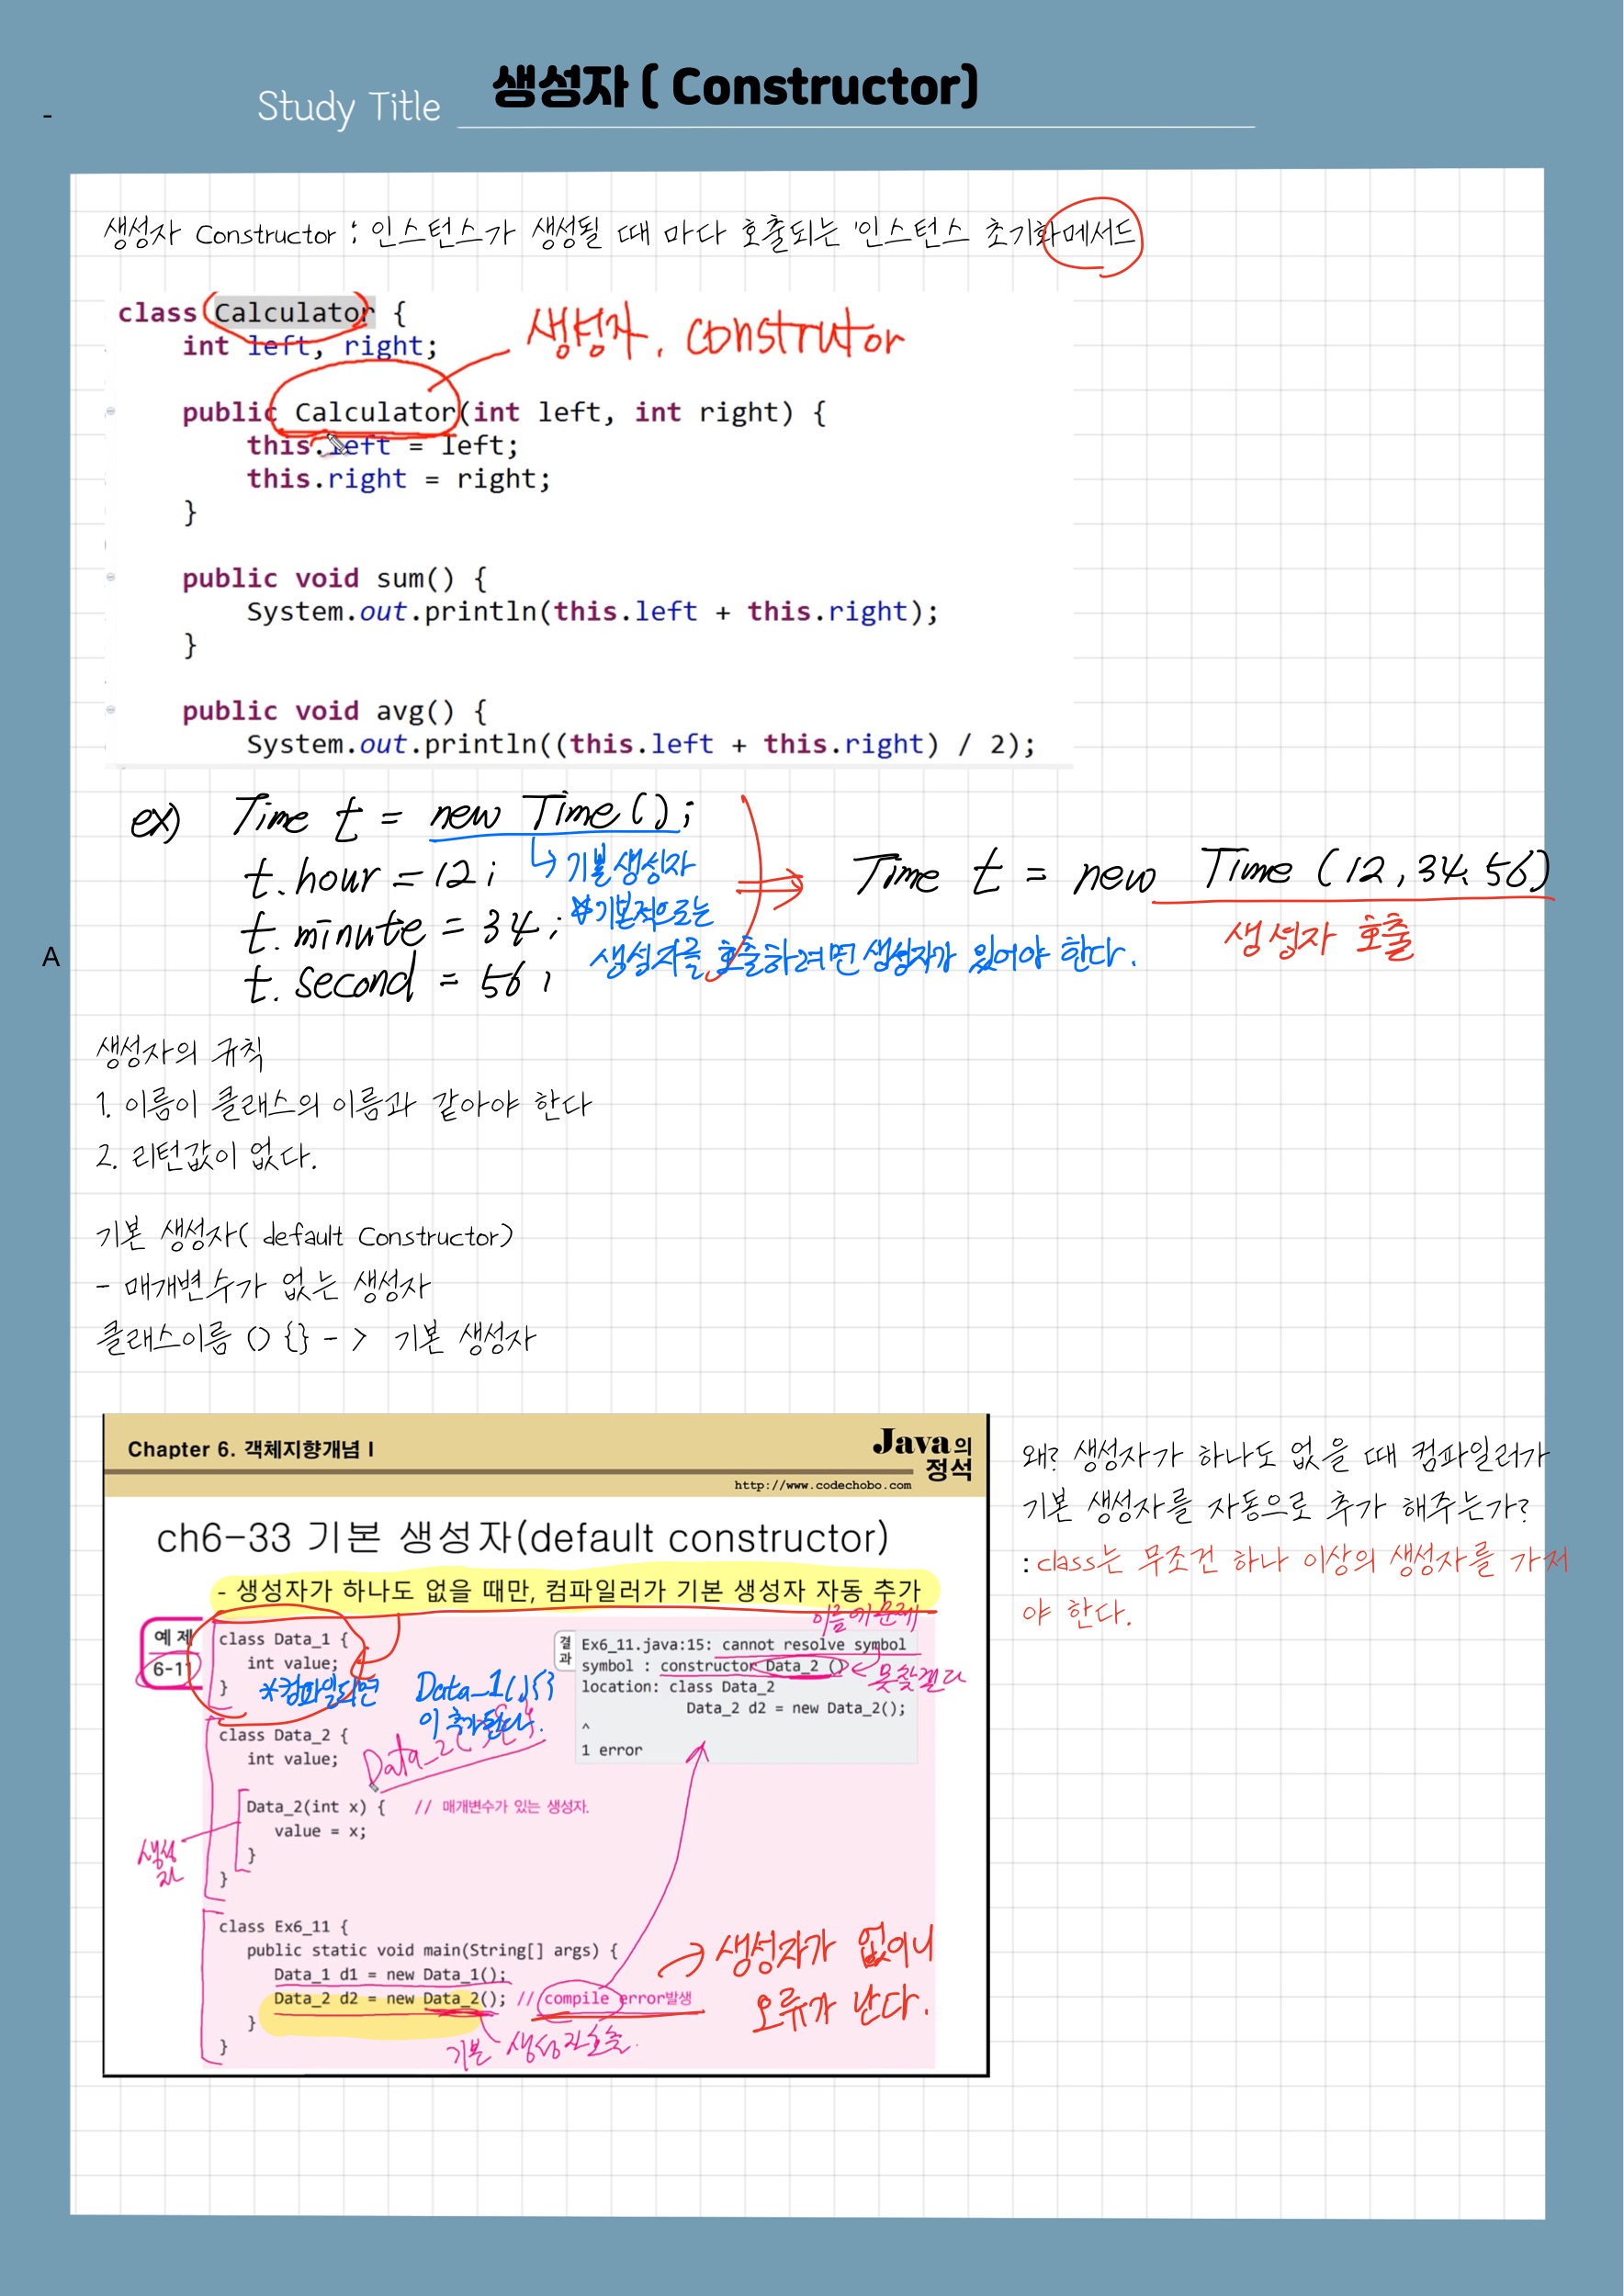 Study Title 생성자 ( Constructor)
-
생성자 Constructor : 인스턴스가 생성될 때 마다 호출되는 '인스턴스 초기화메서드
class Calculator {
int left, right;
생성자. construtor
public Calculator(int left, int right) {
this.left = left;
this.right = right;
}
public void sum() {
System.out.println(this.left + this.right);
}
public void avg() {
System.out.println((this.left + this.right) / 2);
ex) Time t = new Time();
t.hour = 12;
t.minute = 34;
t.second = 56;
↳ 기본생성자
※기본적으로는
생성자를 호출하려면 생성자가 있어야 한다.
⇒ Time t = new Time (12, 34, 56)
생성자 호출
A
생성자의 규칙
1. 이름이 클래스의 이름과 같아야 한다
2. 리턴값이 없다.
기본 생성자( default Constructor)
- 매개변수가 없는 생성자
클래스이름 () {} - > 기본 생성자
Chapter 6. 객체지향개념 I
Java의 정석
http://www.codechobo.com
ch6-33 기본 생성자(default constructor)
- 생성자가 하나도 없을 때만, 컴파일러가 기본 생성자 자동 추가
예제
6-11
class Data_1 {
int value;
}
*컴파일되면 Data_1(){}
이 추가된다.
class Data_2 {
int value;
Data_2(
Data_2(int x) { // 매개변수가 있는 생성자.
value = x;
}
}
생성자
결과
이름에 문제
Ex6_11.java:15: cannot resolve symbol
symbol : constructor Data_2 ()
못찾겠다
location: class Data_2
Data_2 d2 = new Data_2();
^
1 error
class Ex6_11 {
public static void main(String[] args) {
Data_1 d1 = new Data_1();
Data_2 d2 = new Data_2(); // compile error발생
}
}
기본 생성자호출.
→ 생성자가 없으니
오류가 난다.
왜? 생성자가 하나도 없을 때 컴파일러가
기본 생성자를 자동으로 추가 해주는가?
: class는 무조건 하나 이상의 생성자를 가져
야 한다.